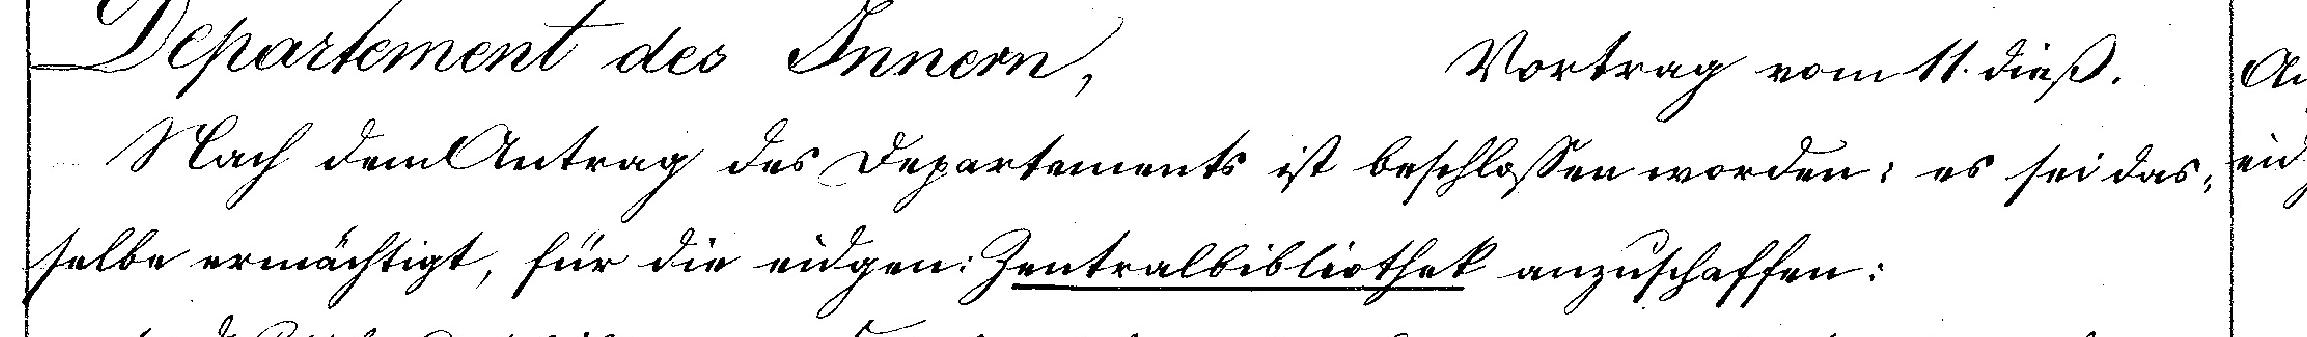 Departement des Innern, Vortrag vom 11. dieß.
Nach dem Antrag des Departements ist beschlossen worden: es sei das-
selbe ermächtigt, für die eidgen: Zentralbibliothek anzuschaffen: